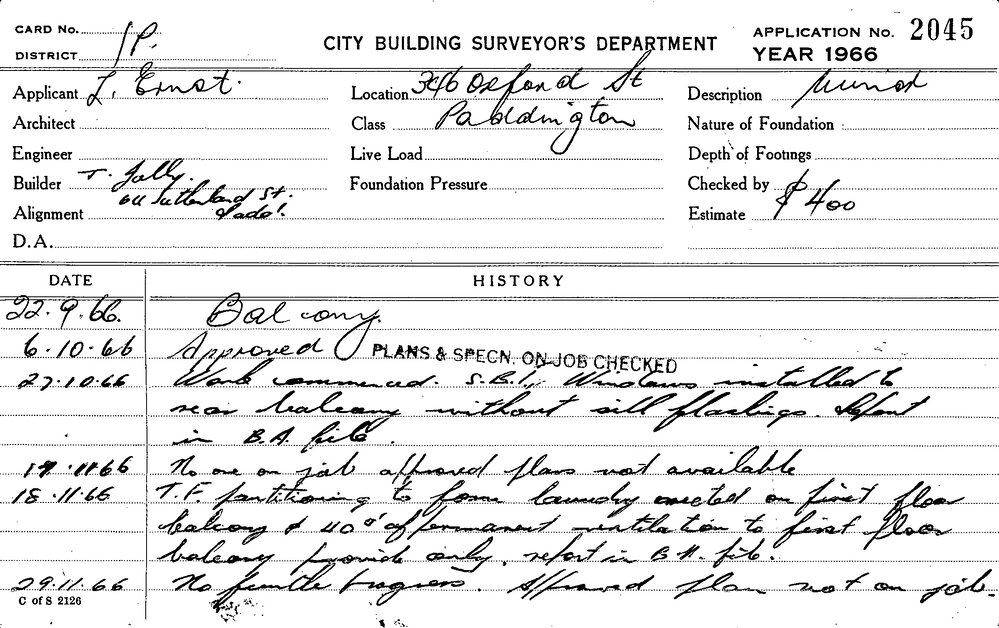 CARD No.
DISTRICT 1P.
CITY BUILDING SURVEYOR'S DEPARTMENT
APPLICATION No. 2045
YEAR 1966
Applicant L. Ernst.
Location 346 Oxford St
Description
Architect
Class Paddington
Nature of Foundation
Engineer
Live Load
Depth of Footings
Builder T. Jolly.
64 Sutherland St.
Foundation Pressure
Checked by
Alignment
Estimate $400
D.A.
DATE HISTORY
22.9.66. Balcony.
6.10.66 Approved PLANS & SPECN. ON JOB CHECKED
27.10.66 Work commenced. Windows installed to
rear balcony without sill flashings. Report
in B.A. file.
17.11.66 No one on job approved plans not available
18.11.66 T.F. partitioning to form laundry erected on first floor
balcony & 40 of permanent ventilation to first floor
balcony provide only. report in B.A. file.
29.11.66 No further progress. Approved plan not on job.
C of S 2126